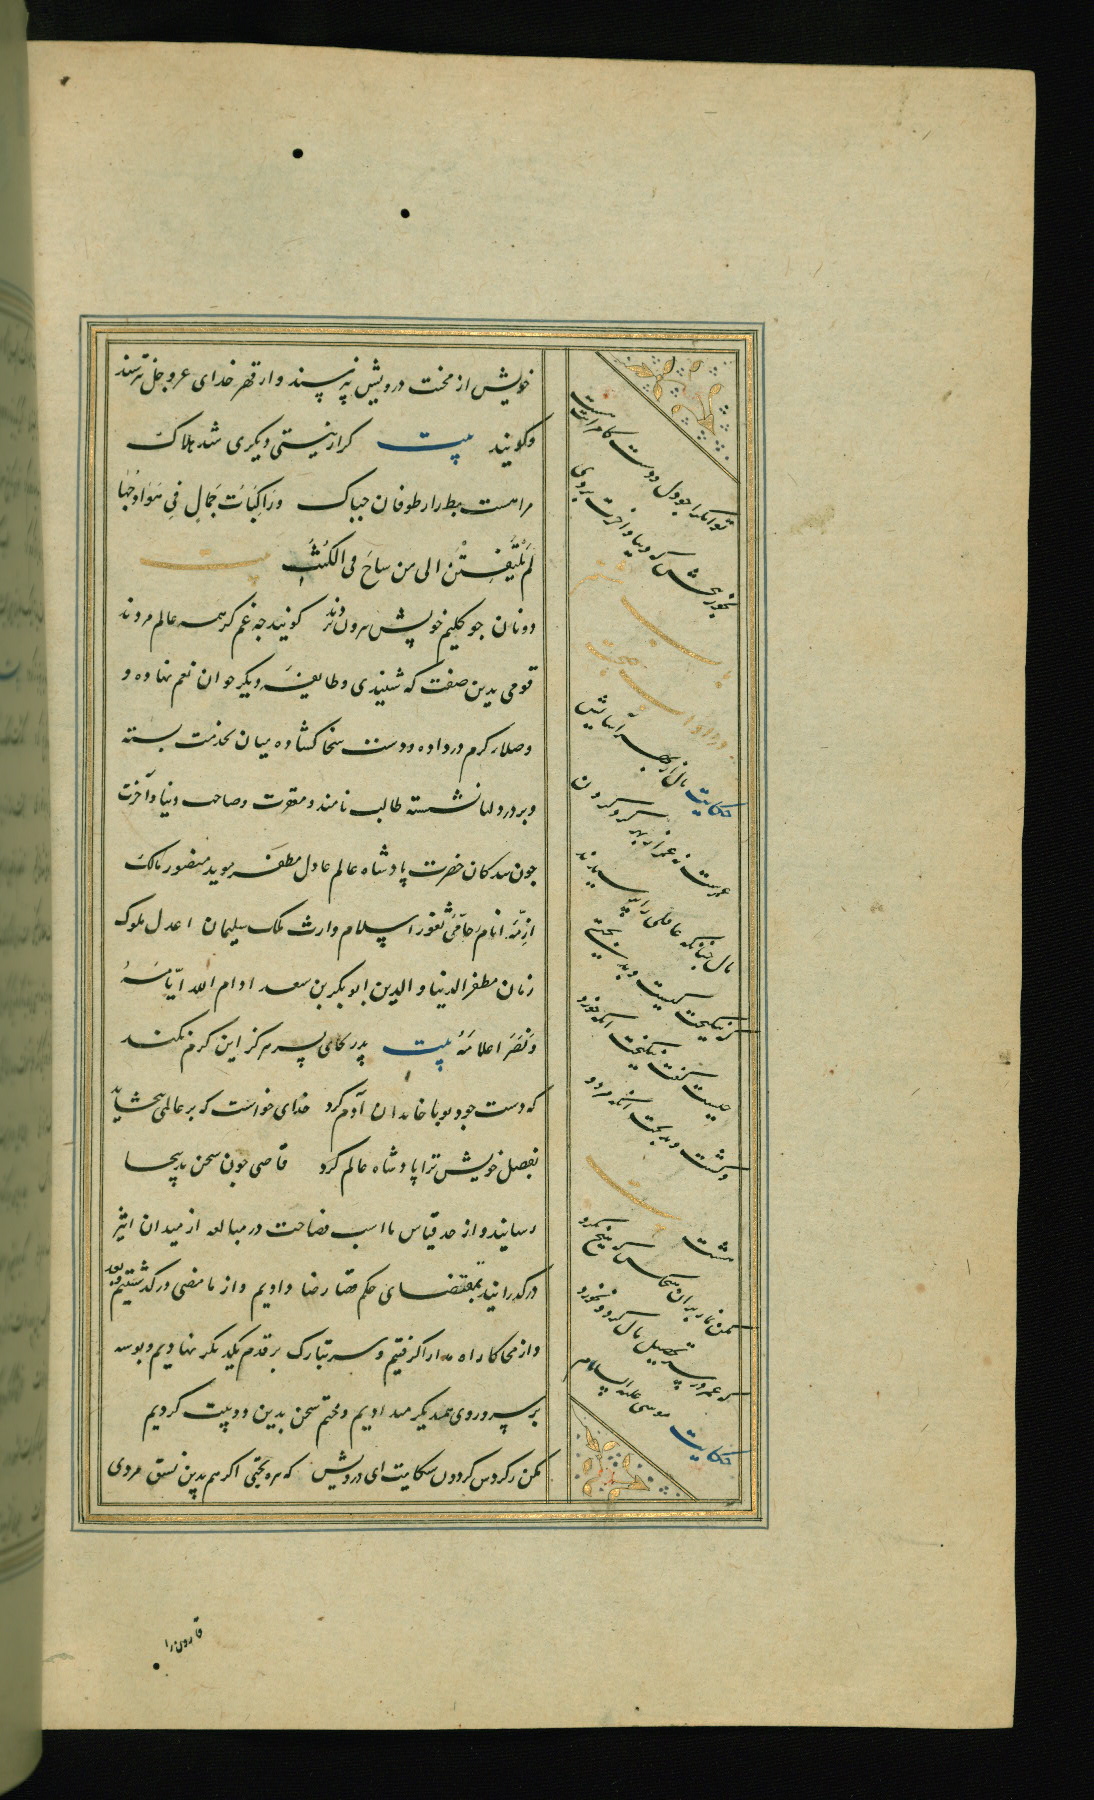 خویش از محنت درویش نپرسند و از قهر خدای عز و جل نترسند
و گویند بیت گر از نیستی دیگری شد هلاک
مرا هست بط را ز طوفان چه باک و راکبات جمال فی هوادجها
لم یلتفتن الی من ساخ فی الکثب بیت
دونان چو گلیم خویش بیرون بردند گویند چه غم گر همه عالم مردند
قومی بدین صفت که شنیدی و طایفه دیگر خوان نعم نهاده و
و صلاء کرم در داده و دست سخا گشاده میان بخدمت بسته
و بر در دلها نشسته طالب نامند و مغفرت و صاحب دنیا و آخرت
چون بندگان حضرت پادشاه عالم عادل مظفر موید منصور مالک
ازمّه انام حامی ثغور اسلام وارث ملک سلیمان اعدل ملوک
زمان مظفر الدنیا و الدین ابوبکر بن سعد ادام الله ایّامه
و نصر اعلامه بیت پدر بجای پسر هرگز این کرم نکند
که دست جود تو با خاندان آدم کرد خدای خواست که بر عالمی ببخشاید
بفضل خویش ترا پادشاه عالم کرد قاضی چون سخن بدینجا
رسانید و از حد قیاس ما اسب فصاحت در مبالغه از میدان
درگذرانید بمقتضای حکم قضا رضا دادیم و از ما مضی درگذشتیم و بعد
و از مجارا راه مدارا گرفتیم و سر بتدارک بر قدم یکدیگر نهادیم و بوسه
بر سر و روی همدیگر دادیم و ختم سخن بدین دو بیت کردیم
مکن ز گردش گردون شکایت ای درویش که تیره بختی اگر هم بدین نسق مردی
توانگرا چو دل و دست کامرانت هست
بخور ببخش که دنیا و آخرت بردی
باب هشتم
در آداب صحبت
حکایت مال از بهر آسایش
عمرست نه عمر از بهر گرد کردن
مال چنانکه عاقلی را پرسیدند
که نیکبخت کیست و بدبختی
چیست گفت نیکبخت آنکه خورد
و کشت و بدبخت آنکه مرد و
هشت بیت
مکن نماز بر آن هیچ کس که هیچ نکرد
که عمر در سر تحصیل مال کرد و نخورد
حکایت موسی علیه السلام
قارون را